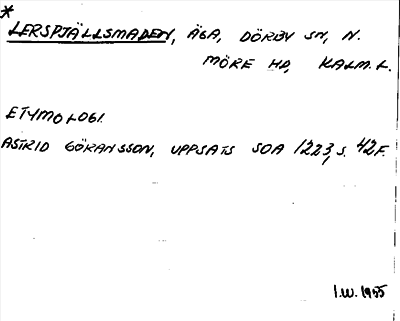 *
LERSPJÄLLSMADEN, ÄGA, DÖRBY SN, N.
MÖRE HD, KALM. L.
ETYMOLOGI.
ASTRID GÖRANSSON, UPPSATS SOA 1223, S. 42F.
I.W. 1955